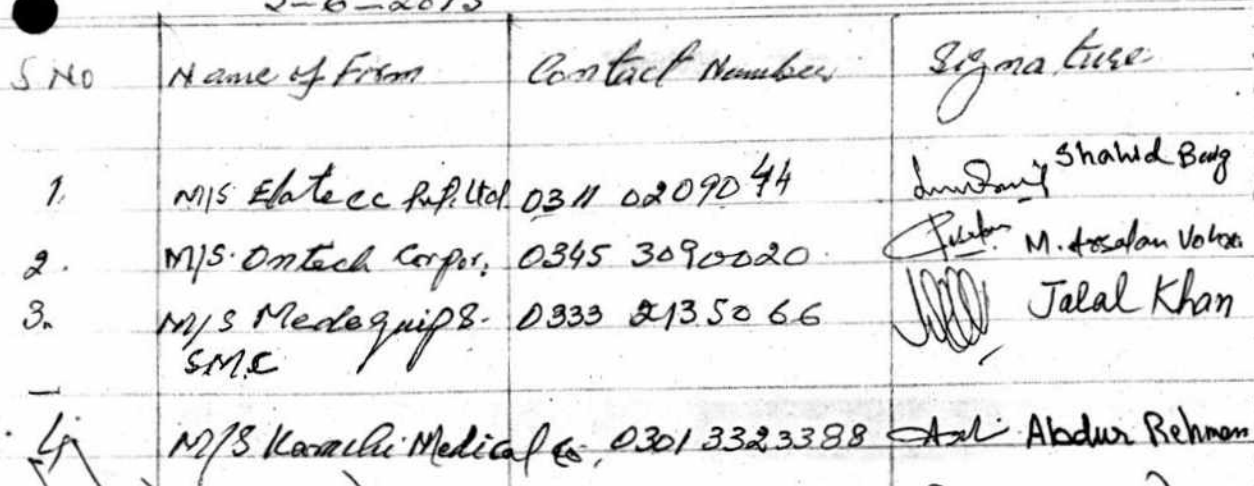 S No Name of Firm Contact Number Signature
1. M/S Elatecc Pvt. Ltd. 0311 0209044 Shahid Baig
2. M/S. Ontech Corpor. 0345 3090020 M. Arsalan Vohra
3. M/S Medequips. 0333 2135066 Jalal Khan
SMC
4 M/S Karachi Medical Co. 0301 3323388 Abdur Rehman